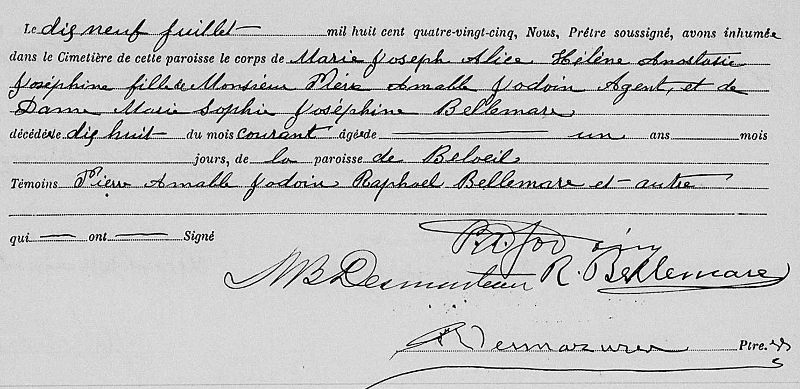 Le dix neuf Juillet mil huit cent quatre-vingt-cinq, Nous, Prêtre soussigné, avons inhumée
dans le Cimetière de cette paroisse le corps de Marie Joseph Alice Hélène Anastasie
Joséphine fille de Monsieur Pierre Amable Jodoin Agent, et de
Dame Marie Sophie Joséphine Bellemare
décédée le dix huit du mois courant âgée de un ans mois
jours, de la paroisse de Beloeil
Témoins Pierre Amable Jodoin Raphael Bellemare et autre
qui ont Signé
P.A. Jodoin
R. Bellemare
Ptre.